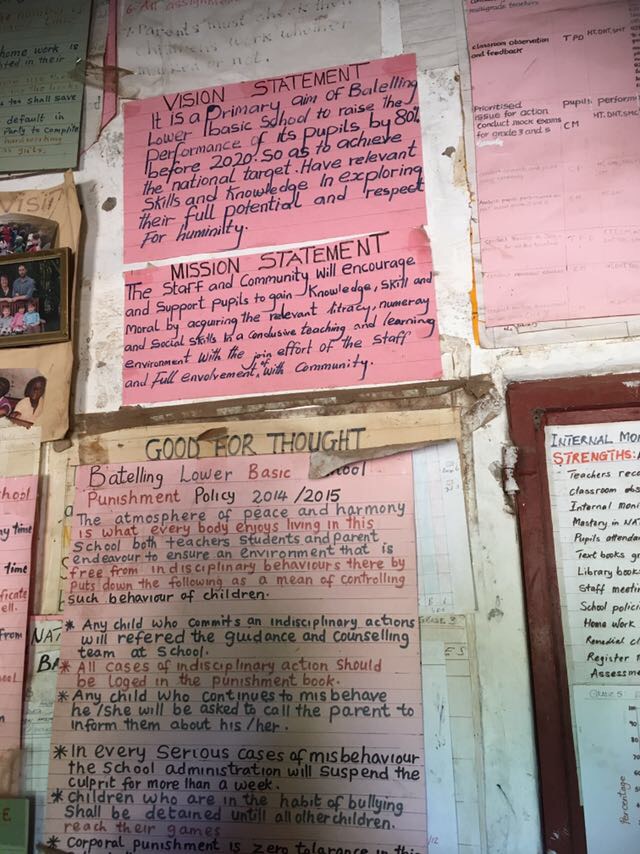 home work is
ted in their
ss shall save
default in
Party to complete
6. All assignm
Parents must check their
childrens work whether
marked or not.
VISION STATEMENT
It is a Primary aim of Batelling
Lower basic School to raise the
performance of its pupils, by 80%
before 2020. So as to achieve
the national target. Have relevant
Skills and Knowledge In exploring
their full potential and respect
For huminilty.
MISSION STATEMENT
The Staff and Community will encourage
and Support pupils to gain Knowledge, Skill and
Moral by acquring the relevant litracy, numeray
and Social skills In a conclusive teaching and learning
environment with the join effort of the Staff
and full envolvement of with Community.
multigrade teachers
classroom observation
and feedback
TPD
HT, DHT, SMT
Prioritised
issue for action
pupils performa
Conduct mock exams
for grade 3 and 5
CM
HT, DHT, SMC
Visit
GOOD FOR THOUGHT
Batelling Lower Basic ool
Punishment Policy 2014/2015
The atmosphere of peace and harmony
is what every body enjoys living in this
School both teachers students and parent
endeavour to ensure an environment that is
free from indisciplinary behaviours there by
puts down the following as a mean of controlling
such behaviour of children.
* Any child who commits an indisciplinary actions
will refered the guidance and counselling
team at School.
* All cases of indisciplinary action should
be loged in the punishment book.
* Any child who continues to misbehave
he/she will be asked to call the parent to
inform them about his/her.
* In every Serious cases of misbehaviour
the School administration will suspend the
culprit for more than a week.
* Children who are in the habit of bullying
Shall be detained untill all other children.
reach their games
* Corporal punishment is zero tolerance in this
chool
ny time
time
ficate
ell.
from
ool
NAT
BA
GRADE 3
ES
INTERNAL MO
STRENGTHS:
Teachers reco
classroom obs
Internal moni
Mastery in NA
Pupils attendan
Text books g
Library books
Staff meetin
School polici
Home work
Remedial cl
Register
Assessme
Grade 5
Percentage